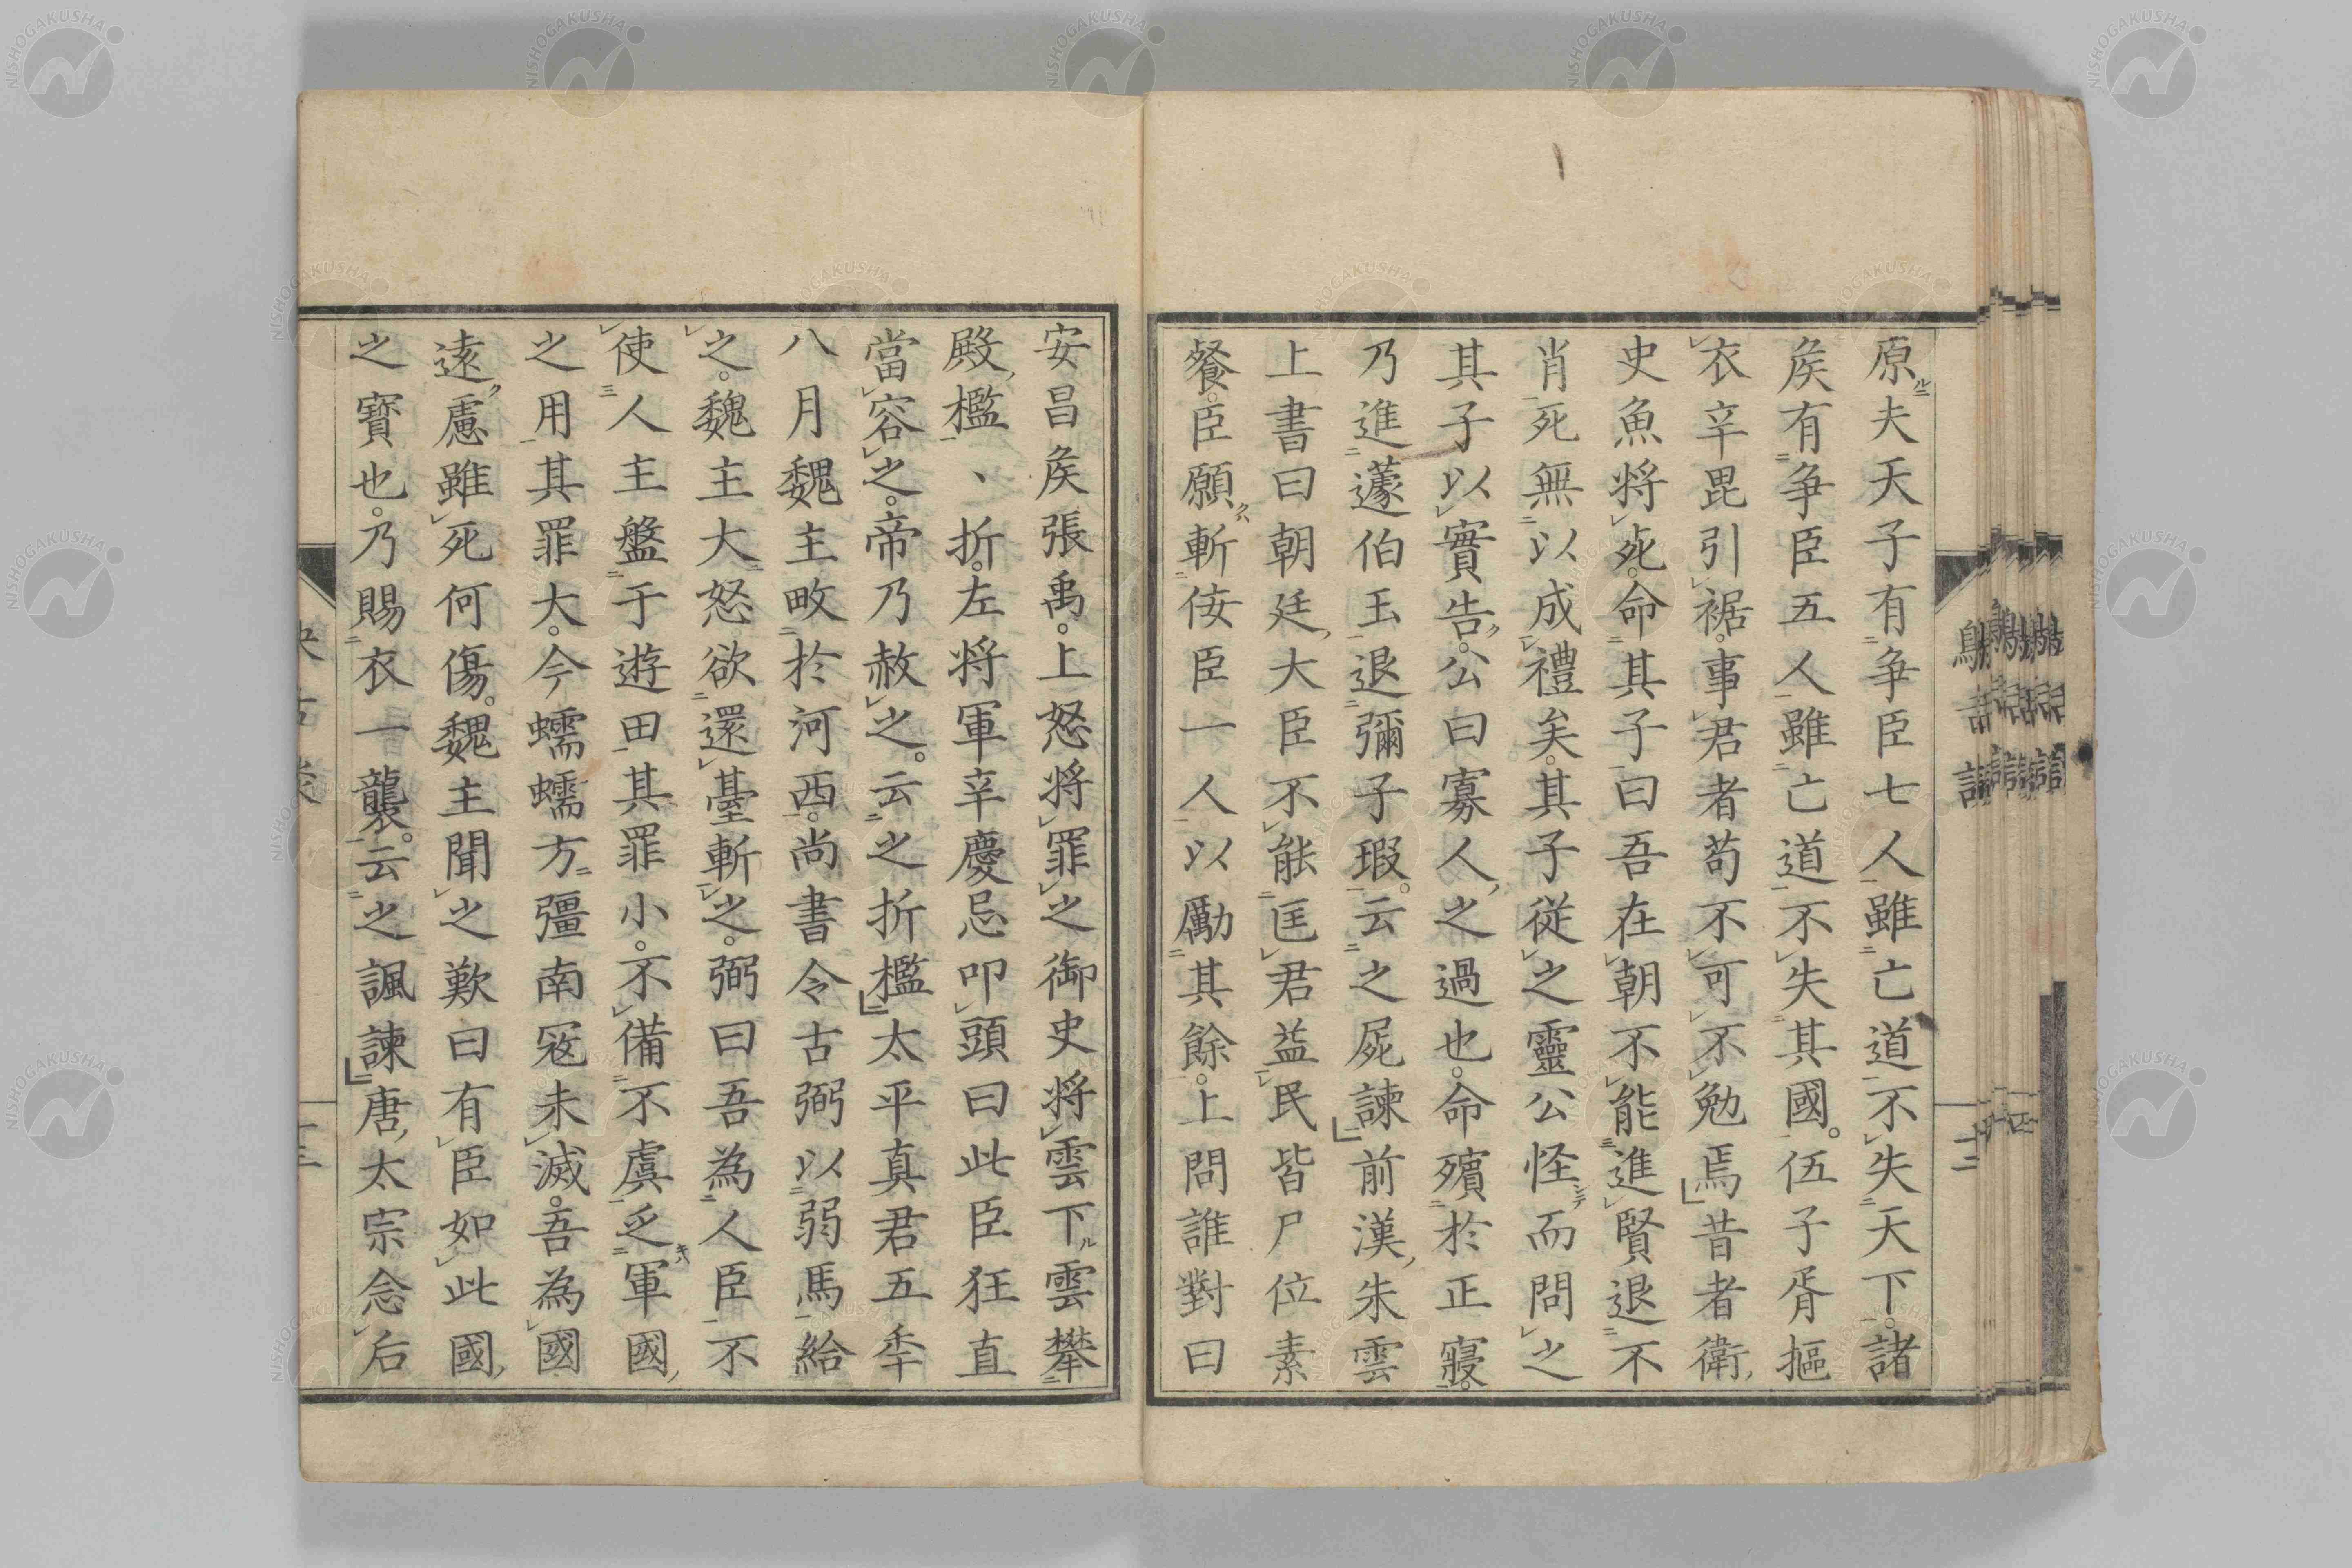 原夫天子有争臣七人雖亡道不失天下諸
矦有争臣五人雖亡道不失其國。伍子胥摳
衣辛毘引裾。事君者苟不可不勉焉」昔者衛
史魚将死。命其子曰吾在朝不能進賢退不
肖死無以成禮矣。其子従之靈公怪而問之
其子以實告。公曰寡人之過也。命殯於正寢。
乃進蘧伯玉退彌子瑕。云之屍諫」前漢朱雲
上書曰朝廷大臣不能匡君益民皆尸位素
餐。臣願斬侫臣一人以勵其餘。上問誰對曰
安昌矦張禹。上怒将罪之御史将雲下雲攀
殿檻、折。左将軍辛慶忌叩頭曰此臣狂直
當容之。帝乃赦之。云之折檻」太平真君五秊
八月魏主畋於河西。尚書令古弼以弱馬給
之。魏主大怒欲還臺斬之。弼曰吾為人臣不
使人主盤于遊田其罪小。不備不虞乏軍國
之用其罪大。今蠕蠕方彊南冦未滅。吾為國
遠慮雖死何傷。魏主聞之歎曰有臣如此國
之寶也。乃賜衣一襲。云之諷諫」唐太宗念后
十二
NISHOGAKUSHA